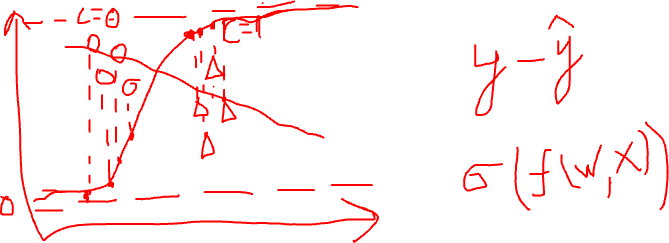 C=0
C=1
0
y - ŷ
σ(f(W,X))